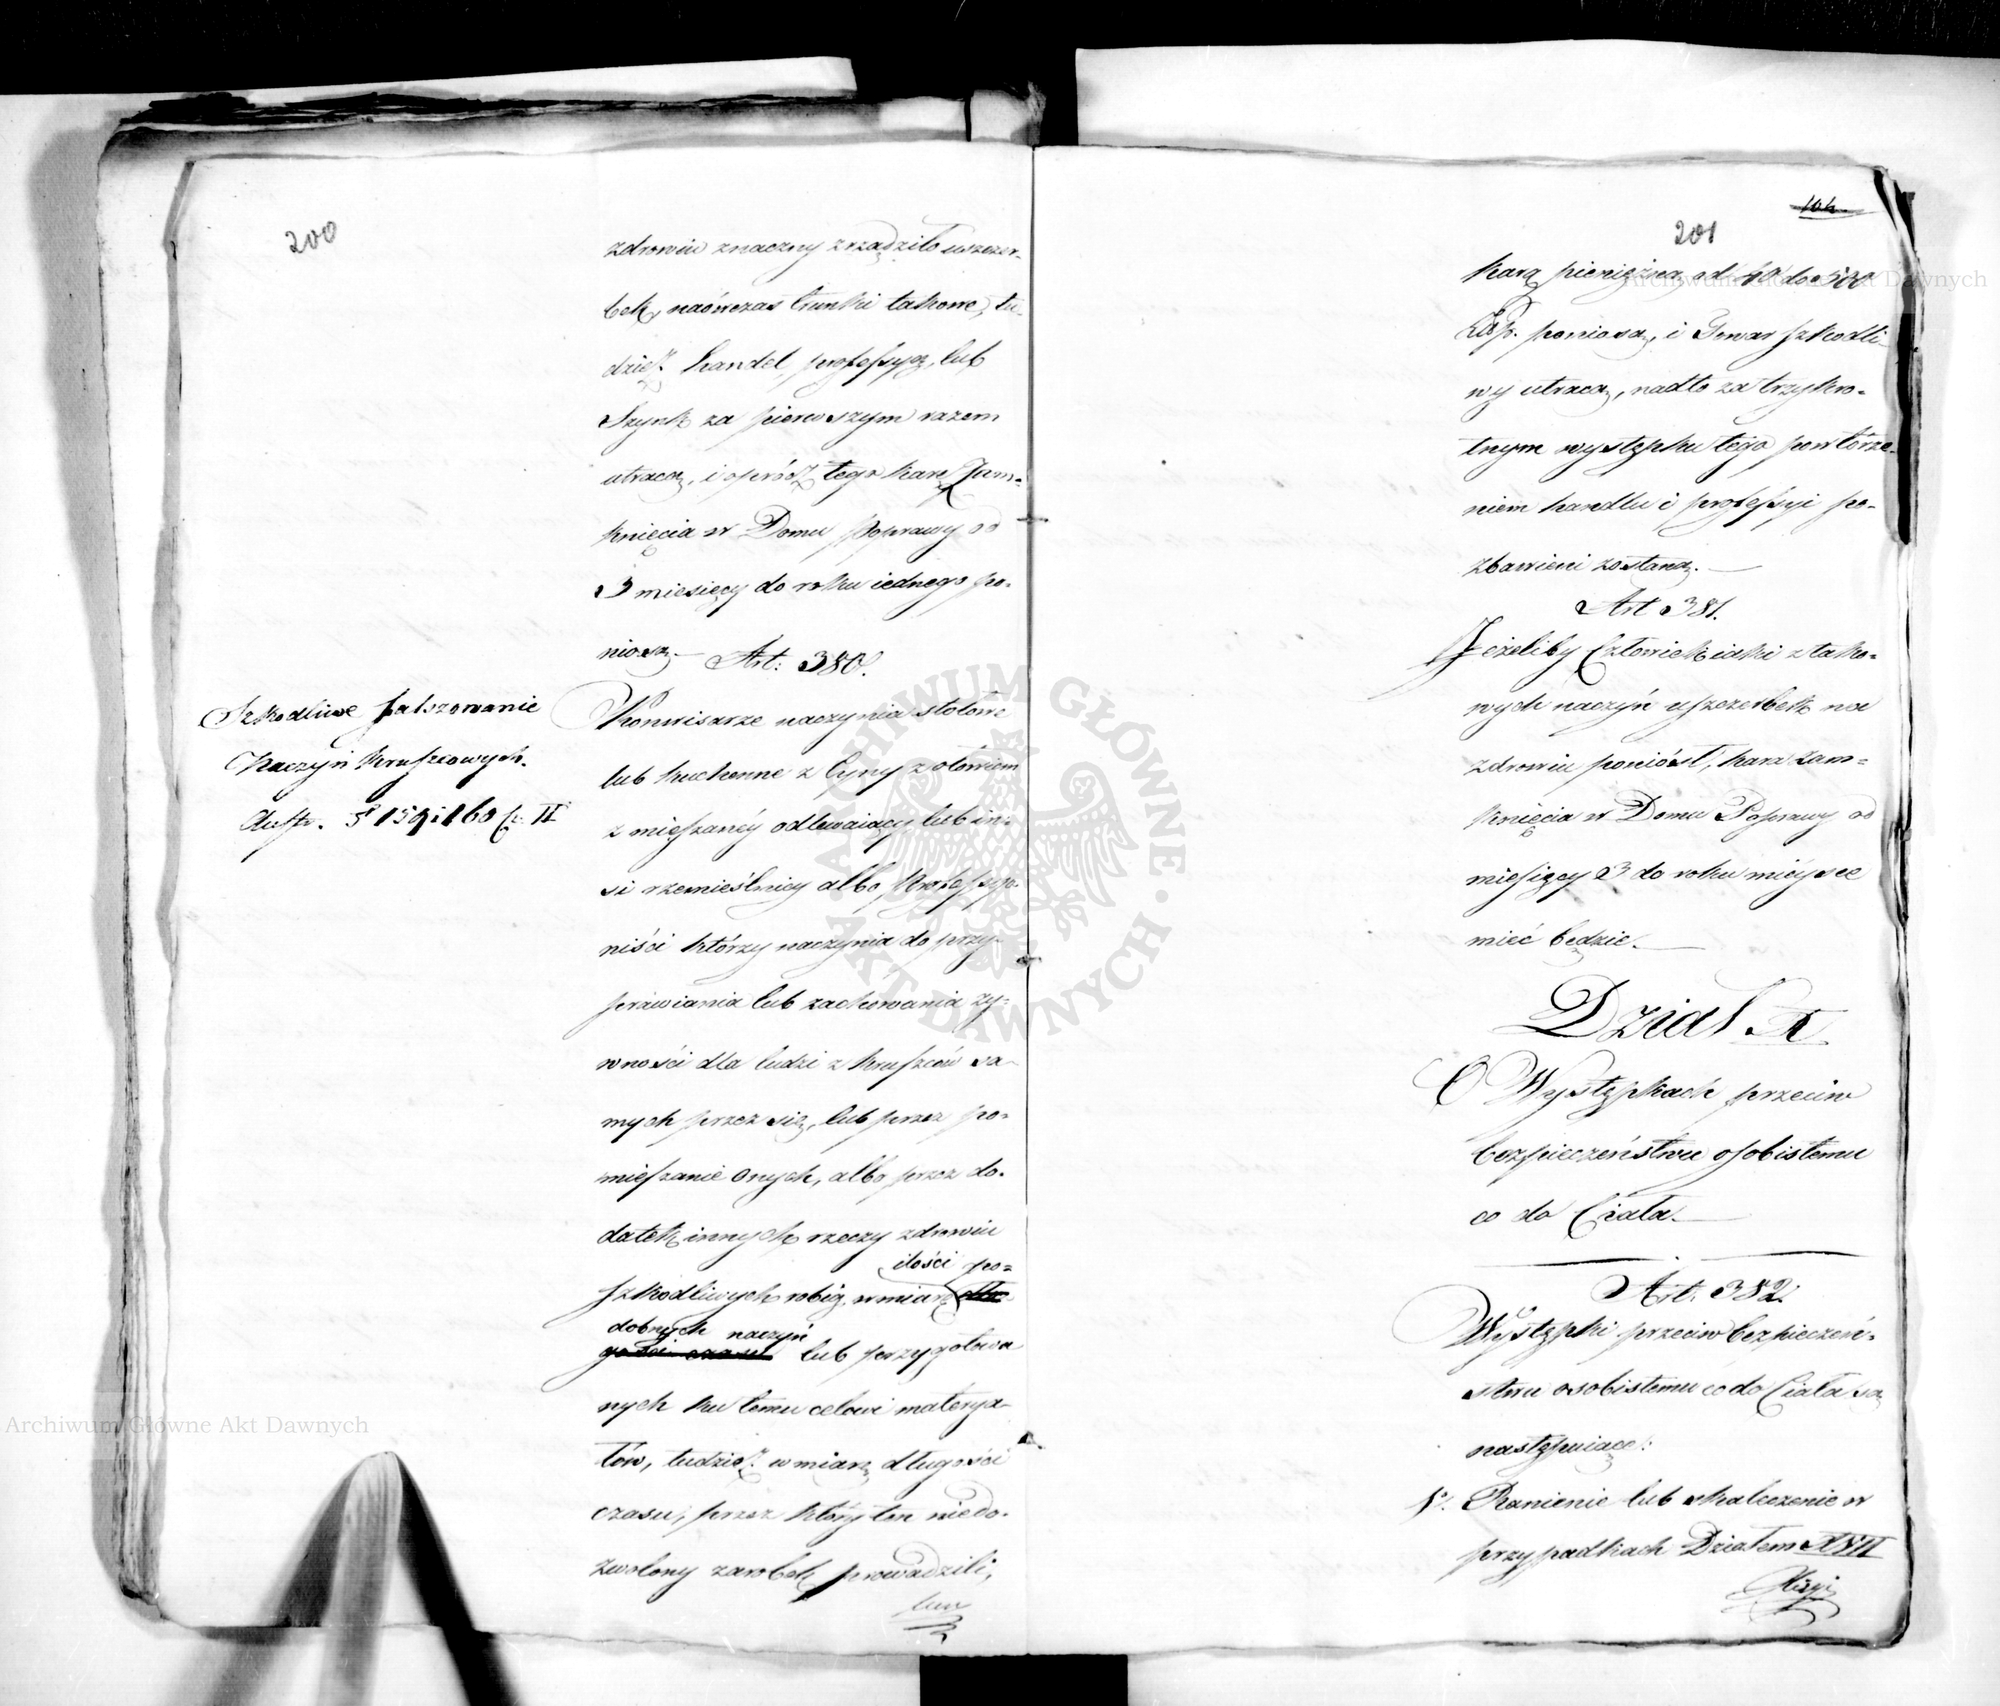 200
zdrowiu znaczny zrządziło uszczer-
bek, naówczas trunki takowe, tu-
dzież handel, professyą, lub
Szynk za pierwszym razem
utracą, i oprócz tego karę Zam-
knięcia w Domu Poprawy od
3 miesięcy do roku iednego po-
niosą.— Art: 380.
Szkodliwe fałszowanie
Naczyń kruszcowych.
Austr. § 159 i 160 Cz. II
Konwisarze naczynia stołowe
lub kuchenne z Cyny z ołowiem
zmięszanéy odlewaiący, lub in-
si rzemieślnicy albo Professyo-
niści którzy naczynia do przy-
prawiania lub zachowania ży-
wności dla ludzi z kruszców sa-
mych przez się, lub przez po-
mięszanie onych, albo przez do-
datek innych rzeczy zdrowiu
ilości po-
szkodliwych robią, w miarę
dobnych naczyń
lub przygotowa
nych ku temu celowi materya-
łów, tudzież w miarę długości
czasu, przez który ten niedo-
zwolony zarobek prowadzili,
karę
104
201
karę pieniężną od 40 do 500
Złp. poniosą, i Towar szkodli-
wy utracą, nadto za trzykro-
tnym występku tego powtórze-
niem handlu i professyi po-
zbawieni zostaną.—
Art 381.
Jeżeliby Człowiek iaki z tako-
wych naczyń uszczerbek na
zdrowiu poniósł, kara Zam-
knięcia w Domu Poprawy od
miesięcy 3 do roku mieysce
mieć będzie.—
Dział X
O Występkach przeciw
bezpieczeństwu osobistemu
co do Ciała.—
Art. 382.
Występki przeciw bezpieczeń-
stwu osobistemu co do Ciała są
następuiące:
1o. Ranienie lub skaleczenie w
przypadkach Działem XVII
Archiwum Główne Akt Dawnych
Archiwum Główne Akt Dawnych
ARCHIWUM GŁÓWNE · AKT DAWNYCH ·